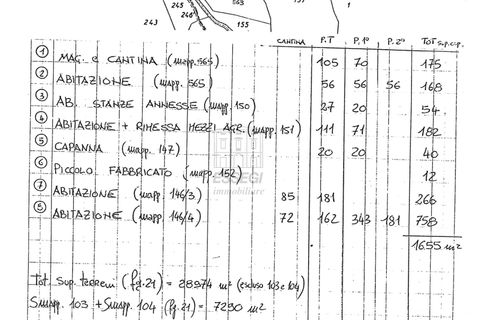 563
1
245
246
243
155
CANTINA P.T P.1° P.2° TOT sup.cop.
1 MAG. e CANTINA (mapp. 565) 105 70 175
2 ABITAZIONE (mapp. 565) 56 56 56 168
3 AB. STANZE ANNESSE (mapp. 150) 27 20 54
4 ABITAZIONE + RIMESSA MEZZI AGR. (mapp. 151) 111 71 182
5 CAPANNA (mapp. 147) 20 20 40
6 PICCOLO FABBRICATO (mapp. 152) 12
7 ABITAZIONE (mapp 146/3) 85 181 266
8 ABITAZIONE (mapp 146/4) 72 162 343 181 758
1655 m²
immobiliare
Tot sup. terreni (fg.21) = 28974 m² (escluso 103 e 104)
Smapp. 103 + Smapp. 104 (fg.21) = 7290 m²